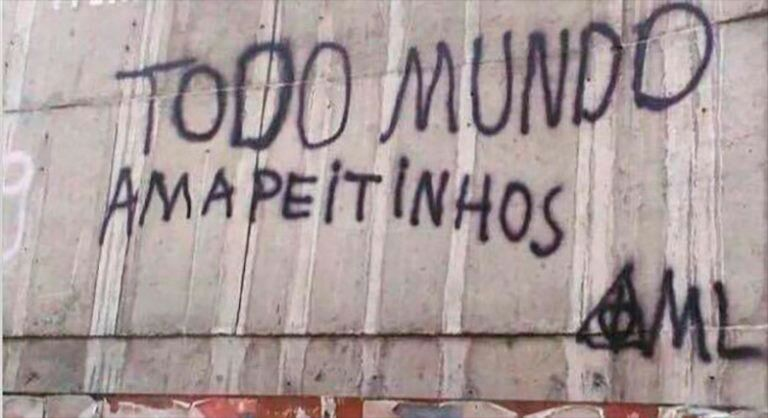 TODO MUNDO
AMA PEITINHOS
ML